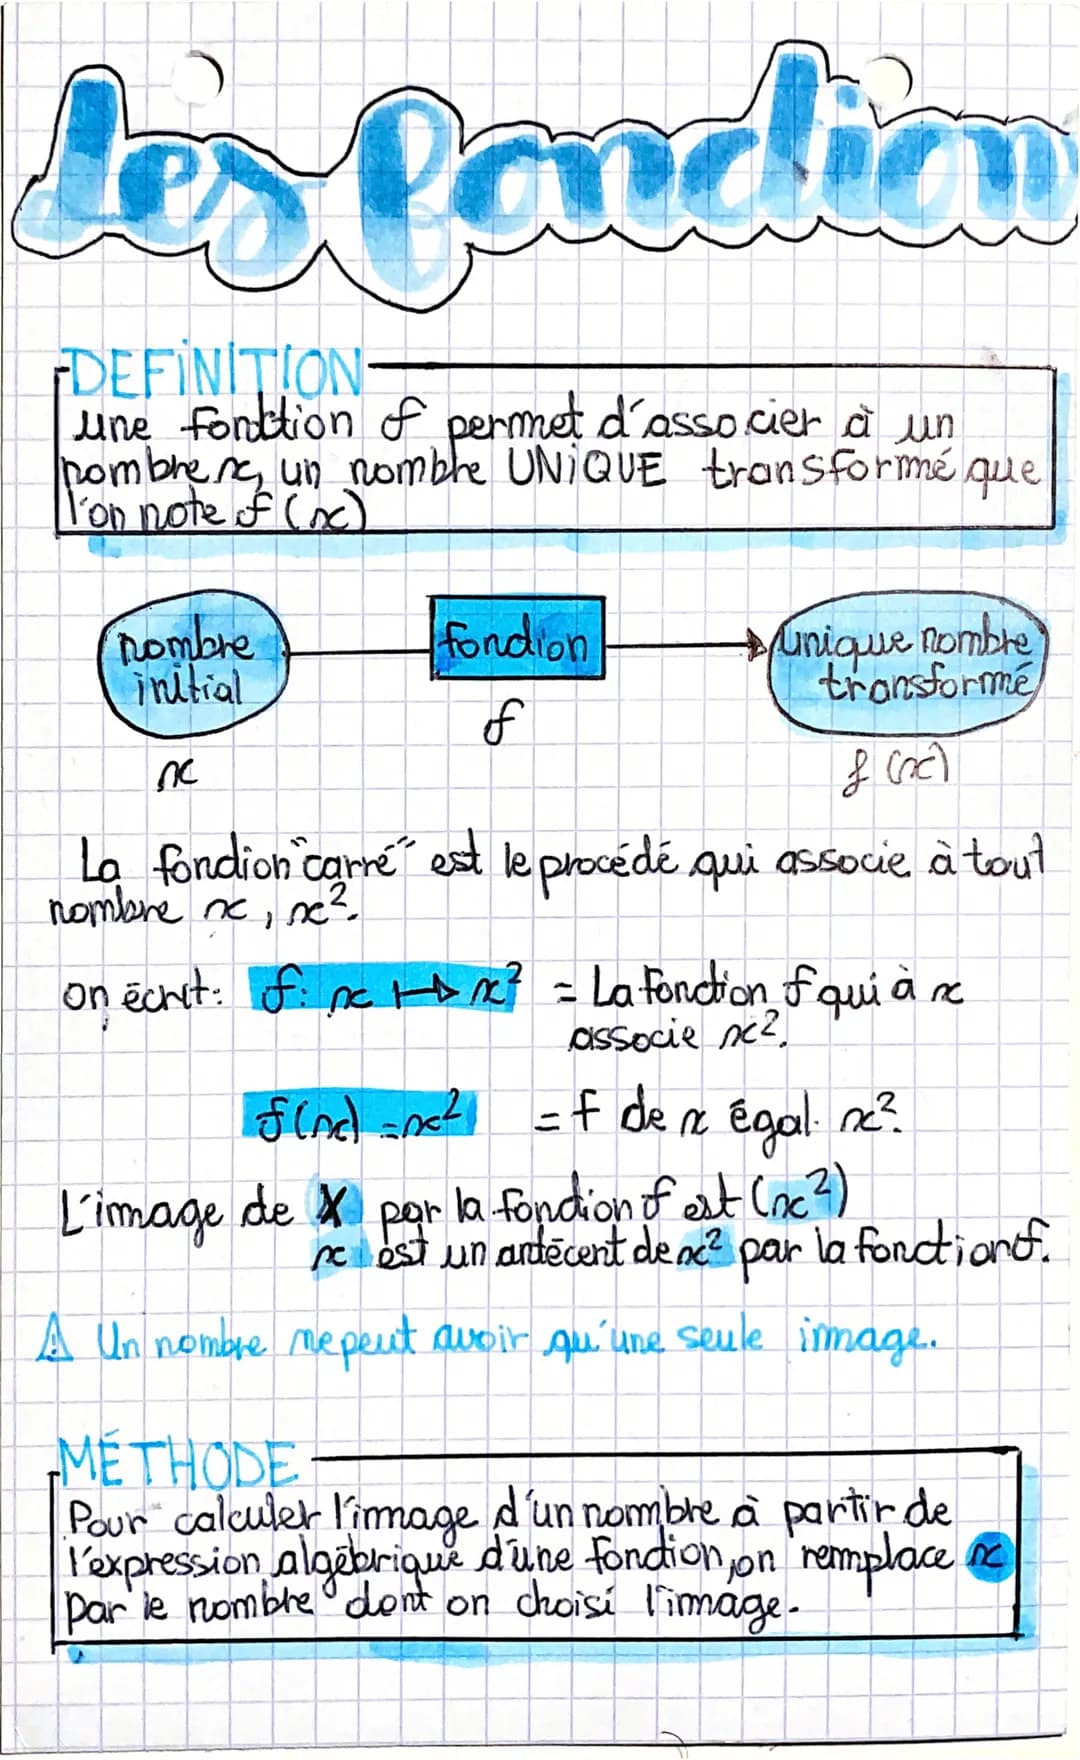 Les fonction
DEFINITION
une fonction f permet d'associer à un
nombre x, un nombre UNIQUE transformé que
l'on note f(x)
nombre
initial
fonction
unique nombre
transformé
f
x
f (x)
La fonction "carré" est le procédé qui associe à tout
nombre x, x².
on écrit: f: x ↦ x² = La fonction f qui à x
associe x².
f(x) = x² = f de x égal x².
L'image de x par la fonction f est (x²)
x est un antécent de x² par la fonction f.
⚠ Un nombre ne peut avoir qu'une seule image.
MÉTHODE
Pour calculer l'image d'un nombre à partir de
l'expression algébrique d'une fonction, on remplace x
par le nombre dont on choisi l'image.